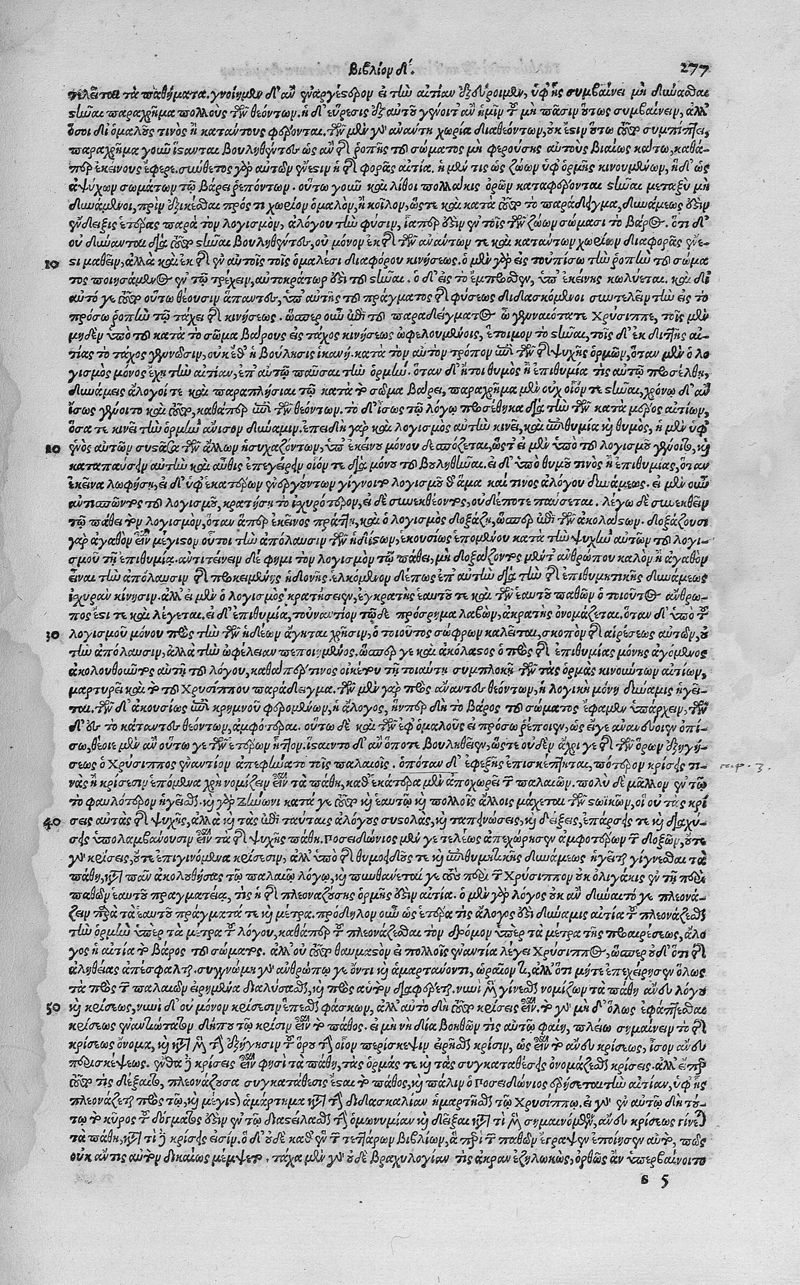 Βιβλίον Δ΄. 277
τελεῖται τὰ παθήματα. γνοίημεν δ' ἂν ἐναργέστερον εἰ τὴν αἰτίαν ἐξεύροιμεν, ὑφ' ἧς συμβαίνει μὴ δύνασθαι
στῆναι παραχρῆμα πολλοὺς τῶν θεόντων. ἡ δ' εὕρεσις ἐξ αὐτοῦ γένοιτ' ἂν ἡμῖν τοῦ μὴ πᾶσιν οὕτως συμβαίνειν, ἀλλ'
ὅσοι δι' ὁμαλοῦς τινος ἢ κατάντους φέρονται. τῶν μὲν γὰρ ἀνάντη χωρία διαθεόντων, οὐκ ἔστιν ὅτῳ τοῦτο συμπίπτει,
παραχρῆμα γοῦν ἵστανται βουληθέντες ὡς ἂν τῆς ῥοπῆς τοῦ σώματος μὴ φερούσης αὐτοὺς βιαίως κάτω, καθά-
περ ἐκείνους ἔφερε. σύνθετος γὰρ αὐτῶν ἐνεστιν ἡ τῆς φορᾶς αἰτία. ἡ μέν τις ὡς ζώων ὑφ' ὁρμῆς κινουμένων, ἡ δ' ὡς
ἀψύχων σωμάτων τῷ βάρει ῥεπόντων. οὕτω γοῦν καὶ λίθοι πολλάκις ὁρῶν καταφέρονται στῆναι μεταξὺ μὴ
δυνάμενοι, πρὶν ἐξικέσθαι πρός τι χωρίον ὁμαλὸν, ἢ κοῖλον, ὥστε καὶ κατὰ τοῦτο τὸ παράδειγμα, δυνάμεως ἐστιν
ἔνδειξις ἑτέρας παρὰ τὸν λογισμὸν, ἀλόγου τὴν φύσιν, οἵαπερ ἐστὶν ἐν τοῖς τῶν ζώων σώμασι τὸ βάρος. ὅτι δ'
οὐ δύνανται διὰ τοῦτο στῆναι βουληθέντες, οὐ μόνον ἐκ τῆς τῶν ἀνάντων τε καὶ κατάντων χωρίων διαφορᾶς ἔνε-
10 στι μαθεῖν, ἀλλὰ καὶ ἐκ τῆς ἐν αὐτοῖς τοῖς ὁμαλέσι διαφόρου κινήσεως. ὁ μὲν γὰρ εἰς τοὐπίσω τὴν ῥοπὴν τοῦ σώμα
τος ποιησάμενος ἐν τῷ τρέχειν, αὐτοκράτωρ ἐστὶ τοῦ στῆναι. ὁ δ' εἰς τὸ ἔμπροσθεν, ὑπ' ἐκείνης κωλύεται. καὶ δι'
αὐτό γε τοῦτο οὕτω θέουσιν ἅπαντες, ὑπ' αὐτῆς τοῦ πράγματος τῆς φύσεως διδασκόμενοι συντελεῖν τὴν εἰς τὸ
πρόσω ῥοπὴν τῷ τάχει τῆς κινήσεως. ὥσπερ οὖν ἐπὶ τοῦ παραδείγματος ὦ γενναιότατε Χρύσιππε, τοῖς μὲν
μηδὲν ὑπὸ τοῦ κατὰ τὸ σῶμα βάρους εἰς τάχος κινήσεως ὠφελουμένοις, ἕτοιμον τὸ στῆναι, τοῖς δ' ἐκ διττῆς αἰ-
τίας τὸ τάχος γεννῶσιν, οὐκέθ' ἡ βούλησις ἱκανή. κατὰ τὸν αὐτὸν τρόπον ἐπὶ τῶν τῆς ψυχῆς ὁρμῶν, ὅταν μὲν ὁ λο
γισμὸς μόνος ἔχῃ τὴν αἰτίαν, ἐπ' αὐτῷ παῦσαι τὴν ὁρμήν. ὅταν δ' ἤτοι θυμὸς ἢ ἐπιθυμία τῆς αὐτῇ προσέλθῃ,
δυνάμεις ἄλογοί τε καὶ παραπλήσιαι τῷ κατὰ τὸ σῶμα βάρει, παραχρῆμα μὲν οὐχ οἷόν τε στῆναι, χρόνῳ δ' ἂν
ἴσως γένοιτο καὶ τοῦτο, καθάπερ ἐπὶ τῶν θεόντων. τὸ δ' ἴσως τῷ λόγῳ προσέθηκα διὰ τὴν τῶν κατὰ μέρος αἰτίων,
ὅσα τε κινεῖ τὴν ὁρμὴν ἄνισον δύναμιν. ἐπειδὴ γὰρ καὶ λογισμὸς αὐτὴν κινεῖ, καὶ ἐπιθυμία καὶ θυμὸς, ἡ μὲν ὑφ'
20 ἑνὸς αὐτῶν συστᾶσα τῶν ἄλλων ἡσυχαζόντων, ὑπ' ἐκείνου μόνου δεσπόζεται, ὥστ' εἰ μὲν ὑπὸ τοῦ λογισμοῦ γένοιτο, καὶ
καταπαύσειν αὐτὴν καὶ αὖθις ἐπεγείρειν οἷόν τε διὰ μόνου τοῦ βουληθῆναι. εἰ δ' ὑπὸ θυμοῦ τινος ἢ ἐπιθυμίας, ὅταν
ἐκεῖνα λωφήσῃ. εἰ δ' ὑφ' ἑκατέρων ἐνεργούντων γίγνοιτο λογισμοῦ θ' ἅμα καί τινος ἀλόγου δυνάμεως. εἰ μὲν οὖν
ἀντισπῶντος τοῦ λογισμοῦ, κρατήσῃ τὸ ἰσχυρότερον, εἰ δὲ συνεκθέοντος, οὐδέποτε παύσεται. λέγω δὲ συνεκθεῖν
τῷ πάθει τὸν λογισμὸν, ὅταν ἅπερ ἐκεῖνος πράττῃ, καὶ ὁ λογισμὸς δοξάζῃ, ὥσπερ ἐπὶ τῶν ἀκολάστων. δοξάζουσι
γὰρ ἀγαθὸν εἶναι μέγιστον οὗτοι τὴν ἀπόλαυσιν τῶν ἡδέων, ἑκουσίως ἑπομένου κατὰ τὴν ψυχὴν αὐτῶν τοῦ λογι-
σμοῦ τῇ ἐπιθυμίᾳ. ἀντιτείνειν δέ φημι τὸν λογισμὸν τῷ πάθει, μὴ δοξάζοντος μέν τ' ἀνθρώπου καλὸν ἢ ἀγαθὸν
εἶναι τὴν ἀπόλαυσιν τῆς προκειμένης ἡδονῆς. ἑλκόμενον δέ πως ἐπ' αὐτὴν διὰ τὴν τῆς ἐπιθυμητικῆς δυνάμεως
ἰσχυρὰν κίνησιν. ἀλλ' εἰ μὲν ὁ λογισμὸς κρατήσειεν, ἐγκρατὴς ἑαυτοῦ τε καὶ τῶν ἑαυτοῦ παθῶν ὁ τοιοῦτος ἄνθρω-
πός ἐστί τε καὶ λέγεται. εἰ δ' ἐπιθυμία, τοὐναντίον τῷδε πρόσρημα λαβὼν, ἀκρατὴς ὀνομάζεται. ὅταν δ' ὑπὸ τοῦ
30 λογισμοῦ μόνου πρὸς τὴν τῶν ἡδέων ἄγηται χρῆσιν, ὁ τοιοῦτος σώφρων καλεῖται, σκοπὸν τῆς αἱρέσεως αὐτῶν, οὐ
τὴν ἀπόλαυσιν, ἀλλὰ τὴν ὠφέλειαν πεποιημένος. ὥσπερ γε καὶ ἀκόλαστος ὁ πρὸς τῆς ἐπιθυμίας μόνης ἀγόμενος
ἀκολουθούσης αὐτῇ τοῦ λόγου, καθάπερ τινὸς οἰκέτου τῇ τοιαύτῃ συμπλοκῇ τῶν τὰς ὁρμὰς κινούντων αἰτίων,
μαρτυρεῖ καὶ τὸ τοῦ Χρυσίππου παράδειγμα. τῶν μὲν γὰρ πρὸς ἄναντες θεόντων, ἡ λογικὴ μόνη δύναμις ἡγεῖ-
ται. τῶν δ' ἀκουσίως ἐπὶ κρημνοῦ φερομένων, ἡ ἄλογος, ἥνπερ δὴ τὸ βάρος τοῦ σώματος ἔφαμεν ὑπάρχειν. τῶν
δ' εἰς τὸ κάταντες θεόντων, ἀμφότεραι. οὕτω δὲ καὶ τῶν ἐφ' ὁμαλοῦς εἰ πρόσω ῥέποιεν, ὡς εἴγε ἀνανεύοιεν ὀπί-
σω, θέοιεν μὲν ἂν οὕτω γε τῶν ἑτέρων ἧττον. ἵσταιντο δ' ἂν ὁπότε βουληθεῖεν, ὥστε οὐδὲν ἄχρι γε τῆς τῶν ὅρων ἐξηγή-
σεως ὁ Χρύσιππος ἐναντίον ἀπεφήνατο τοῖς παλαιοῖς. ὁπόταν δ' ἐφεξῆς ἐπισκέπτηται, πότερον κρίσεις τι-
νὰς ἢ κρίσεσιν ἑπόμενα χρὴ νομίζειν εἶναι τὰ πάθη, καθ' ἑκάτερα μὲν ἀποχωρεῖ τῶν παλαιῶν. πολὺ δὲ μᾶλλον ἐν τῷ
τὸ φαυλότερον ἡγεῖσθαι, καὶ γὰρ πλείονι κατά γε τοῦτο καὶ ἑαυτῷ καὶ πολλοῖς ἄλλοις μάχεται τῶν στωϊκῶν, οἳ οὐ τὰς κρί
40 σεις αὐτὰς τῆς ψυχῆς, ἀλλὰ καὶ τὰς ἐπὶ ταύταις ἀλόγους συστολὰς, καὶ ταπεινώσεις, καὶ δείξεις, ἐπάρσεις τε καὶ διαχύ-
σεις ὑπολαμβάνουσιν εἶναι τὰ τῆς ψυχῆς πάθη. Ποσειδώνιος μέν γε τελέως ἀπεχώρησεν ἀμφοτέρων τῶν δοξῶν, οὔτε
γὰρ κρίσεις, οὔτε ἐπιγινόμενα κρίσεσιν, ἀλλ' ὑπὸ τῆς θυμοειδοῦς τε καὶ ἐπιθυμητικῆς δυνάμεως ἡγεῖται γίγνεσθαι τὰ
πάθη, κατὰ πᾶν ἀκολουθήσας τῷ παλαιῷ λόγῳ, καὶ πυνθάνεταί γε τοῦ περὶ τὸν Χρύσιππον οὐκ ὀλιγάκις ἐν τῇ περὶ
παθῶν ἑαυτοῦ πραγματείᾳ, τίς ἡ τῆς πλεοναζούσης ὁρμῆς ἐστὶν αἰτία. ὁ μὲν γὰρ λόγος οὐκ ἂν δύναιτό γε πλεονά-
ζειν παρὰ τὰ ἑαυτοῦ πράγματά τε καὶ μέτρα. πρόδηλον οὖν ὡς ἑτέρα τις ἄλογος ἐστὶ δύναμις αἰτία τοῦ πλεονάζεσθαι
τὴν ὁρμὴν ὑπὲρ τὰ μέτρα τοῦ λόγου, καθάπερ τοῦ πλεονάζεσθαι τὸν δρόμον ὑπὲρ τὰ μέτρα τῆς προαιρέσεως, ἄλο
γος ἡ αἰτία τὸ βάρος τοῦ σώματος. ἀλλ' οὐ τοῦτο θαυμαστὸν εἰ πολλοῖς ἐναντία λέγει Χρύσιππος, ὥσπερ οὐδ' ὅτι τῆς
ἀληθείας ἀπέσφαλται. συγνώμη γὰρ ἀνθρώπῳ γε ὄντι καὶ ἁμαρτάνοντι, ἀλλ' ὅτι μήτε ἐπεχείρησεν ὅλως
τὰ τῶν παλαιῶν εἰρημένα διαλύσασθαι, καὶ πρὸς αὐτὸν διαφέρεται. νυνὶ μὲν γίνεσθαι νομίζων τὰ πάθη ἄνευ λόγου
50 καὶ κρίσεως, νυνὶ δ' οὐ μόνον κρίσεσιν ἕπεσθαι φάσκων, ἀλλ' αὐτὸ δὴ τοῦτο κρίσεις εἶναι. τὸ γὰρ μὴ δ' ὅλως ἐφάπτεσθαι
κρίσεως ἐναντιώτατον δήπου τῷ κρίσιν εἶναι τὸ πάθος. εἰ μὴ νὴ Δία βοηθῶν τις αὐτῷ φαίη, πλείω σημαίνειν τὸ τῆς
κρίσεως ὄνομα, καὶ κατὰ μὲν τὴν ἐξήγησιν τοῦ ὅρου τὴν οἷον περίσκεψιν εἰρῆσθαι κρίσιν, ὡς εἶναι τὸ ἄνευ κρίσεως, ἴσον ἄνευ
περισκέψεως. ἔνθα δὲ κρίσεις εἶναι φησὶ τὰ πάθη, τὰς ὁρμάς τε καὶ τὰς συγκαταθέσεις ὀνομάζεσθαι κρίσεις. ἀλλ' εἴπερ
τοῦτό τις δέξαιτο, πλεονάζουσα συγκατάθεσις ἔσται τὸ πάθος, καὶ πάλιν ὁ Ποσειδώνιος ἐρήσεται τὴν αἰτίαν, ὑφ' ἧς
πλεονάζει πρὸς τῷ, καὶ μέγιστον ἁμάρτημα κατὰ τὴν διδασκαλίαν ἡμαρτῆσθαι τῷ Χρυσίππῳ, εἰ γὰρ ἐν αὐτῷ δὴ τού-
τῳ τὸ κῦρος τοῦ δόγματος ἐστὶν ἐν τῷ διαστείλασθαι τὴν ὁμωνυμίαν καὶ δεῖξαι κατὰ τί μὲν σημαινόμενον, ἄνευ κρίσεως γίνεται
τὰ πάθη, κατὰ τί δὲ κρίσεις εἰσίν. ὁ δ' οὐδὲ καθ' ἓν τῶν τεττάρων βιβλίων, ἃ περὶ τῶν παθῶν ἔγραψεν ἐποίησεν αὐτὸ, πῶς
οὐκ ἄν τις αὐτὸν δικαίως μέμψαιτο. τάχα μὲν γὰρ οὐδὲ βραχυλογίαν τῆς ἄκραν ἐζηλωκὼς, ὀρθῶς ἂν ὑπερβαίνοιτο
s 5